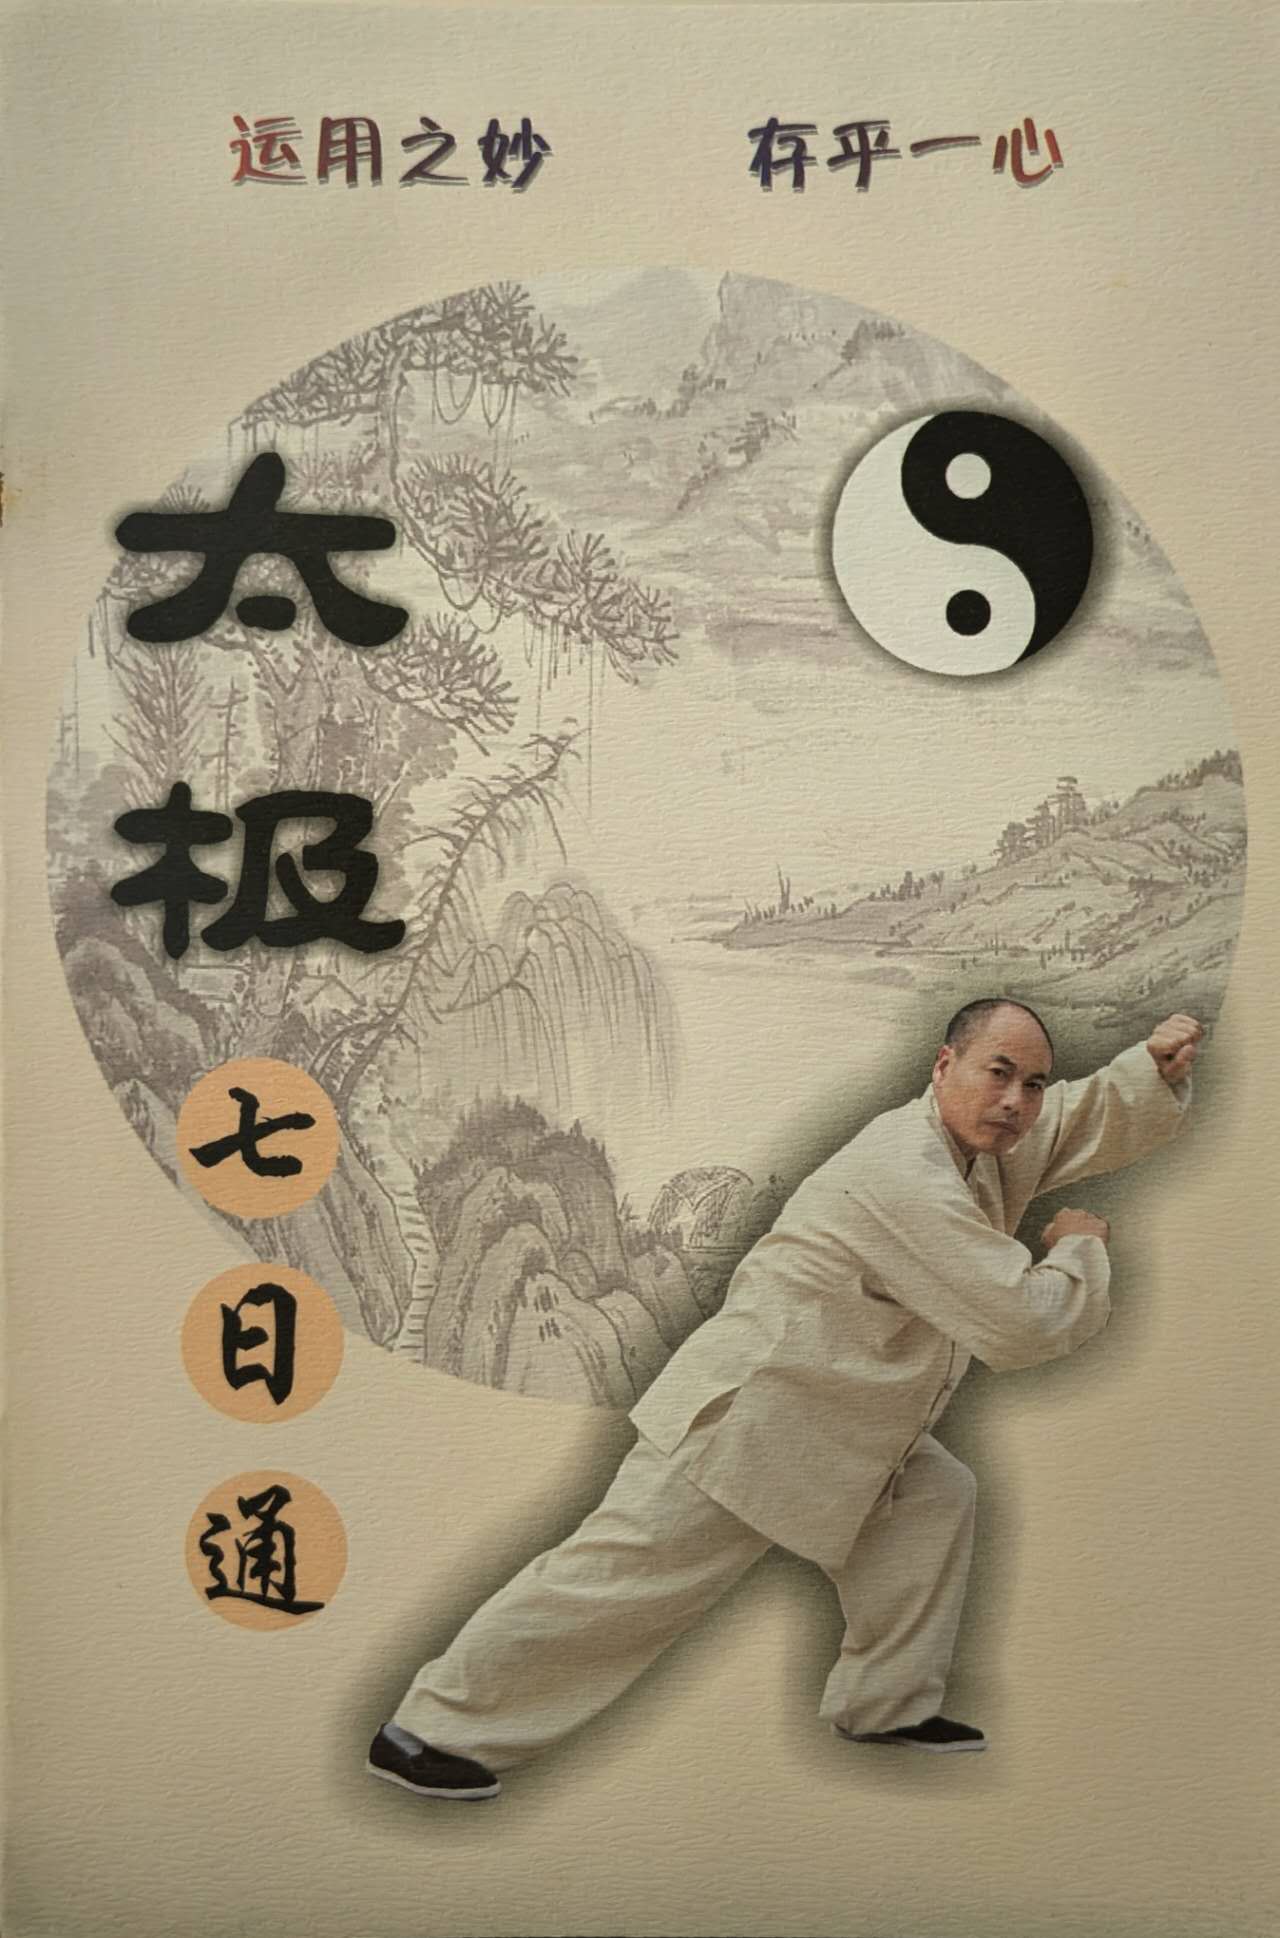 运用之妙 存乎一心
太极
七日通